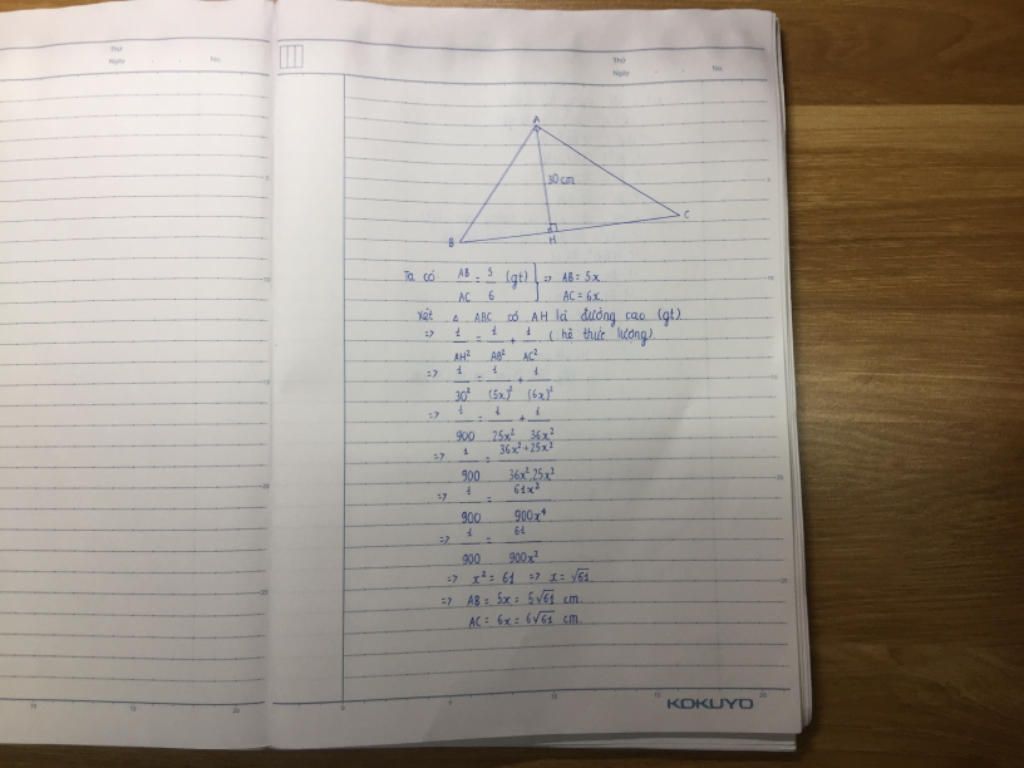 Thứ
Ngày
No.
Thứ
Ngày
No.
A
30 cm
C
B
H
Ta có AB/AC = 5/6 (gt) } => AB = 5x
AC = 6x
Xét △ ABC có AH là đường cao (gt)
=> 1/AH² = 1/AB² + 1/AC² (hệ thức lượng)
=> 1/30² = 1/(5x)² + 1/(6x)²
=> 1/900 = 1/25x² + 1/36x²
=> 1/900 = 36x² + 25x²/36x².25x²
=> 1/900 = 61x²/900x⁴
=> 1/900 = 61/900x²
=> x² = 61 => x = √61
=> AB = 5x = 5√61 cm
AC = 6x = 6√61 cm
KOKUYO